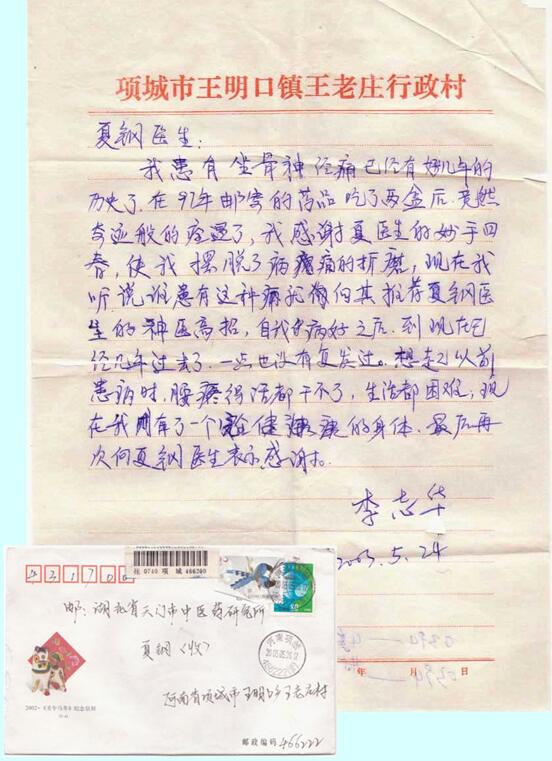 项城市王明口镇王老庄行政村
夏钢医生:
我患有坐骨神经痛已经有好几年的
历史了,在97年邮寄的药品吃了两盒后,竟然
奇迹般的痊愈了,我感谢夏医生的妙手回
春,使我摆脱了病痛的折磨,现在我
听说谁患有这种病就向其推荐夏钢医
生的神医高招,自我病好之后,到现在已
经几年过去了,一点也没有复发过。想起以前
患病时,腰疼得活都干不了,生活都困难,现
在我有了一个健康的身体,最后再
次向夏钢医生表示感谢。
李志华
2003.5.24
年 月 日
431700
挂 0740 项 城 466200
邮:湖北省天门市中医药研究所
夏钢(收)
河南省项城市王明口乡王老庄村
2002·《壬午马年》纪念信封
邮政编码 466222
河南项城